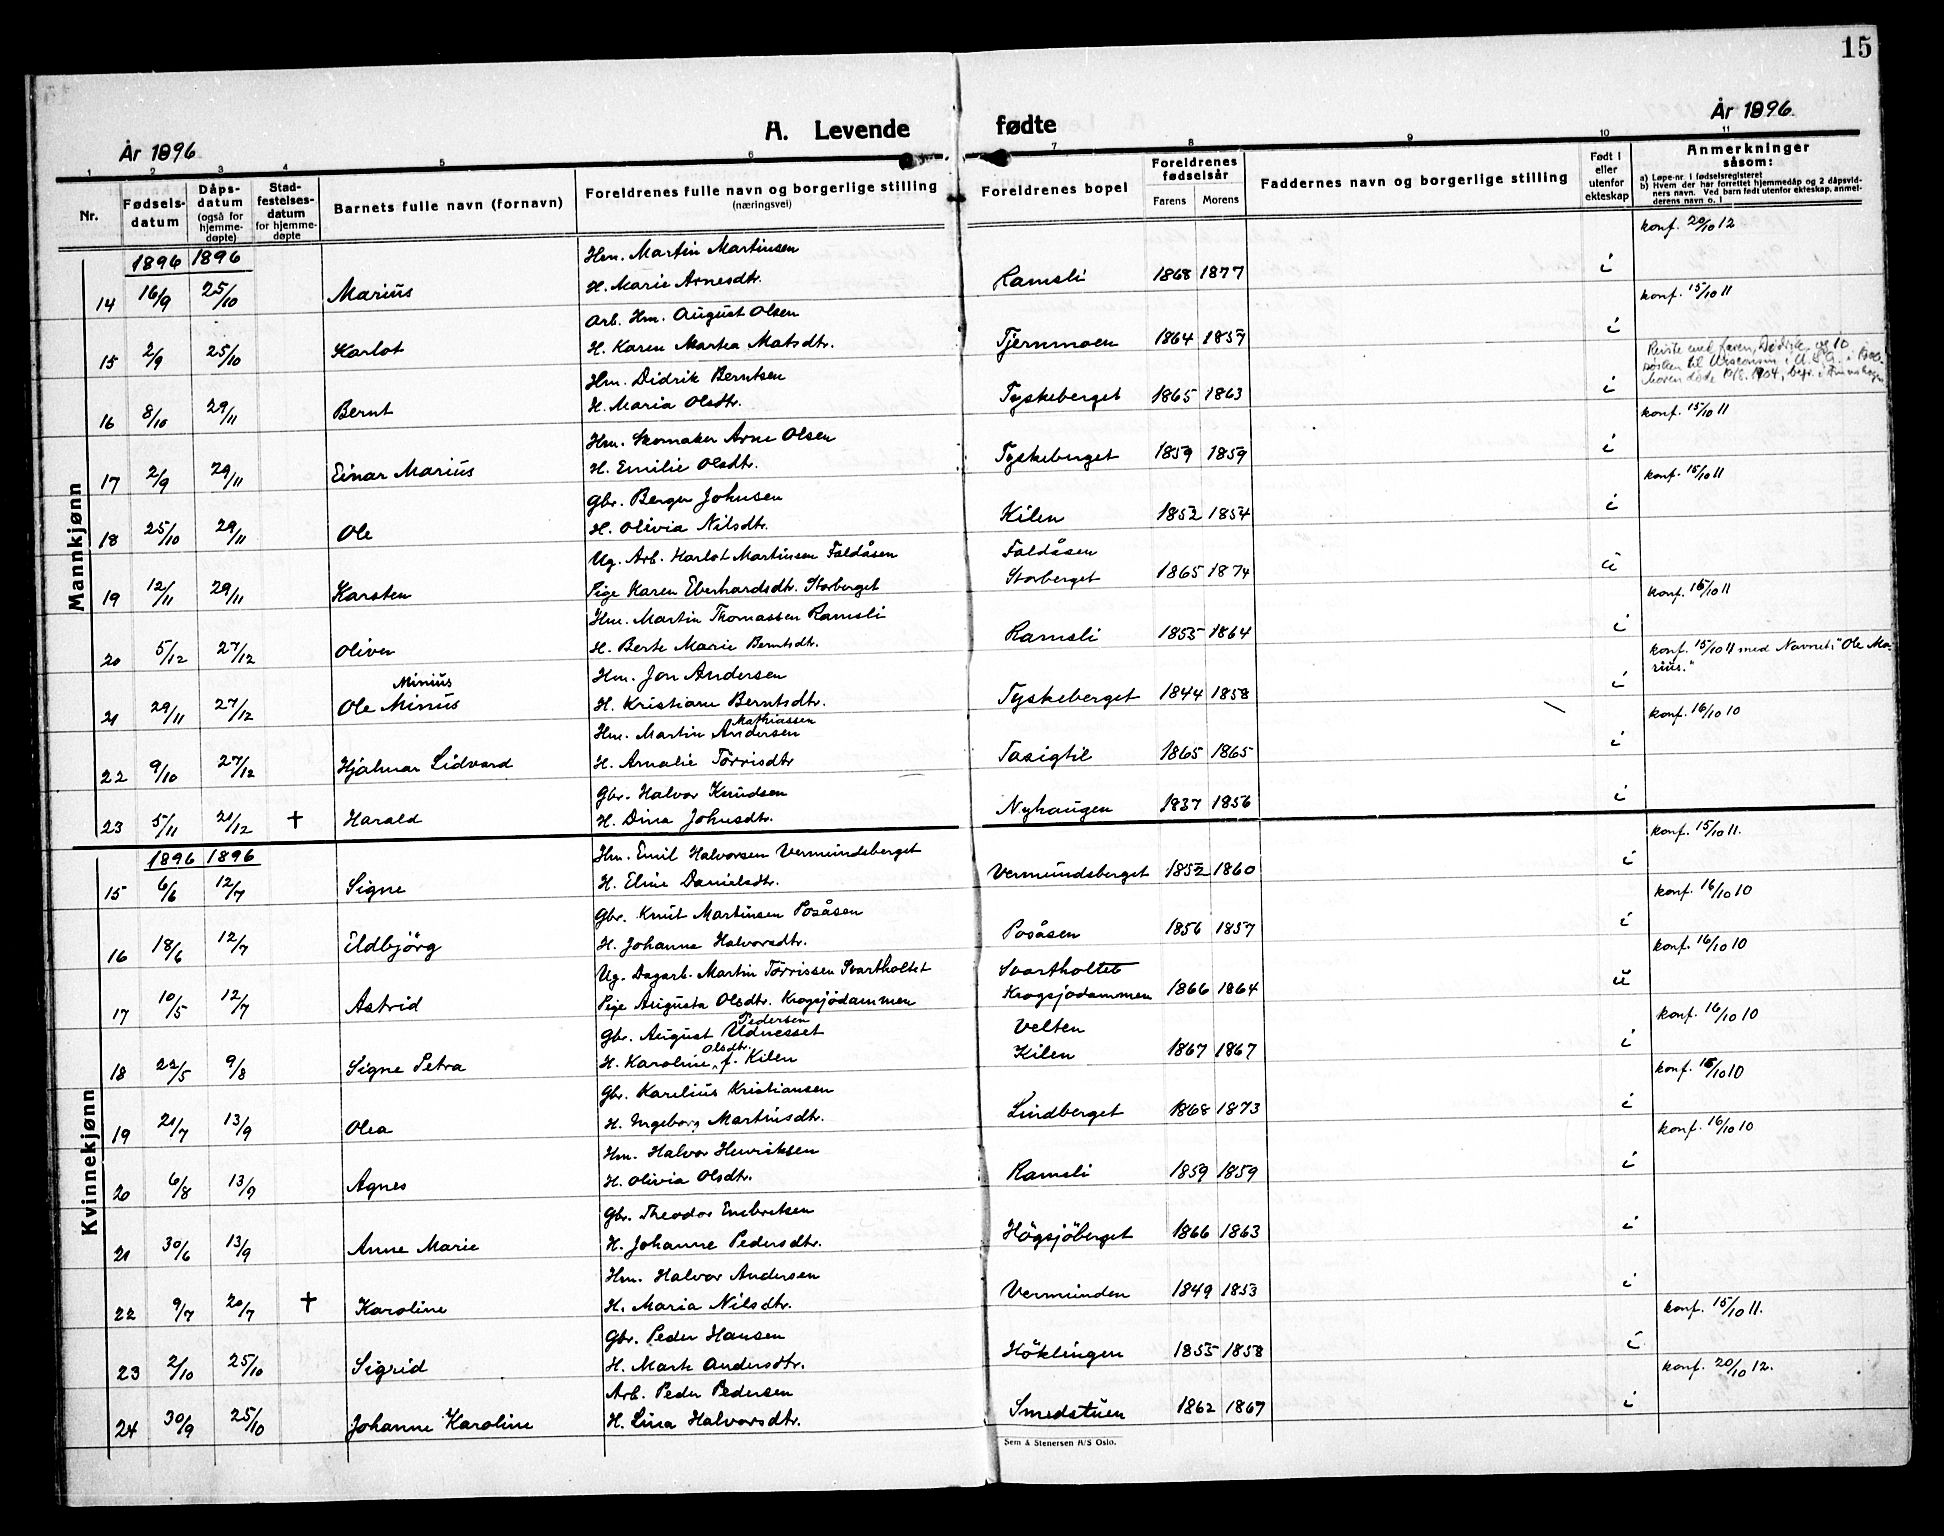 15
År 1896
A. Levende fødte
År 1896.
1 2 3 4 5 6 7 8 9 10 11
Nr.
Fødsels-
datum
Dåps-
datum
(også for
hjemme-
døpte)
Stad-
festelses-
datum
for hjemme-
døpte
Barnets fulle navn (fornavn)
Foreldrenes fulle navn og borgerlige stilling
(næringsvei)
Foreldrenes bopel
Foreldrenes
fødselsår
Farens Morens
Faddernes navn og borgerlige stilling
Født i
eller
utenfor
ekteskap
Anmerkninger
såsom:
a) Løpe-nr. i fødselsregisteret
b) Hvem der har forrettet hjemmedåp og 2 dåpsvid-
ners navn. Ved barn født utenfor ekteskap, anmel-
derens navn o. l
Mannkjønn
1896 1896
Hm. Martin Martinsen konf. 20/10 12
14 16/9 25/10 Marius H. Marie Arnesdtr. Ramsli 1868 1877 i
Arb. Hm. August Olsen konf. 15/10 11
15 2/9 25/10 Karlot H. Karen Martea Matsdtr. Tjernmoen 1864 1857 i
Hm. Didrik Berntsen Reiste med faren, Didrik, og 10
søsken til Wisconsin i U.S.A.
Moren døde 1904, begr. i
16 8/10 29/11 Bernt H. Maria Olsdtr. Tyskeberget 1865 1863 i
Hm. Skomaker Arne Olsen konf. 15/10 11
17 2/9 29/11 Einar Marius H. Emilie Olsdtr. Tyskeberget 1859 1859 i
Gbr. Berger Johnsen konf. 15/10 11
18 25/10 29/11 Ole H. Olivia Nilsdtr. Kilen 1852 1854 i
Ug. Arb. Karlot Martinsen Faldåsen Faldåsen
19 12/11 29/11 Karsten Pige Karen Eberhardsdtr. Storberget Storberget 1865 1874 u
Hm. Martin Thomassen Ramsli konf. 15/10 11
20 5/12 27/12 Oliver H. Berte Marie Berntsdtr. Ramsli 1855 1864 i
Minius Hm. Jon Andersen konf. 15/10 11 med Navnet "Ole Ma-
rius."
21 29/11 27/12 Ole Minius H. Kristiane Berntsdtr. Tyskeberget 1844 1858 i
Mathiassen
Hm. Martin Andersen konf. 16/10 10
22 9/10 27/12 Hjalmar Lidvard H. Amalie Törrisdtr Tasigtil 1865 1865 i
Gbr. Halvor Knudsen
23 5/11 21/12 † Harald H. Dina Johnsdtr. Nyhaugen 1837 1856 i
Kvinnekjønn
1896 1896
Hm. Emil Halvorsen Vermundsberget konf. 15/10 11.
15 6/6 12/7 Signe H. Eline Danielsdtr. Vermundsberget 1852 1860 i
Gbr. Knut Martinsen Posåsen konf. 16/10 10
16 18/6 12/7 Eldbjörg H. Johanne Halvorsdtr. Posåsen 1856 1857 i
Ug. Dagarb. Martin Törrissen Svartholtet Svartholtet konf. 16/10 10
17 10/5 12/7 Astrid Pige Augusta Olsdtr. Krogsjödammen Krogsjödammen 1866 1864 u
Pedersen
Gbr. August Udnesset Velten konf. 16/10 10
Olsdtr.
18 22/5 9/8 Signe Petra H. Karoline, f. Kilen Kilen 1867 1867 i
Gbr. Karelius Kristiansen konf. 16/10 10
19 21/7 13/9 Olea H. Ingeborg Martinsdtr. Lindberget 1868 1873 i
Hm. Halvor Henriksen konf. 16/10 10
20 6/8 13/9 Agnes H. Olivia Olsdtr. Ramsli 1859 1859 i
Gbr. Theodor Embretsen
21 30/6 13/9 Anne Marie H. Johanne Pedersdtr. Högsjöberget 1866 1863 i
Hm. Halvor Andersen
22 9/7 20/7 † Karoline H. Maria Nilsdtr. Vermunden 1849 1853 i
Gbr. Peder Hansen konf. 15/10 11.
23 2/10 25/10 Sigrid H. Marte Andersdtr. Höklingen 1855 1858 i
Arb. Peder Pedersen konf. 20/10 12.
24 30/9 25/10 Johanne Karoline H. Lina Halvorsdtr. Smedstuen 1862 1867 i
Sem & Stenersen A/S Oslo.